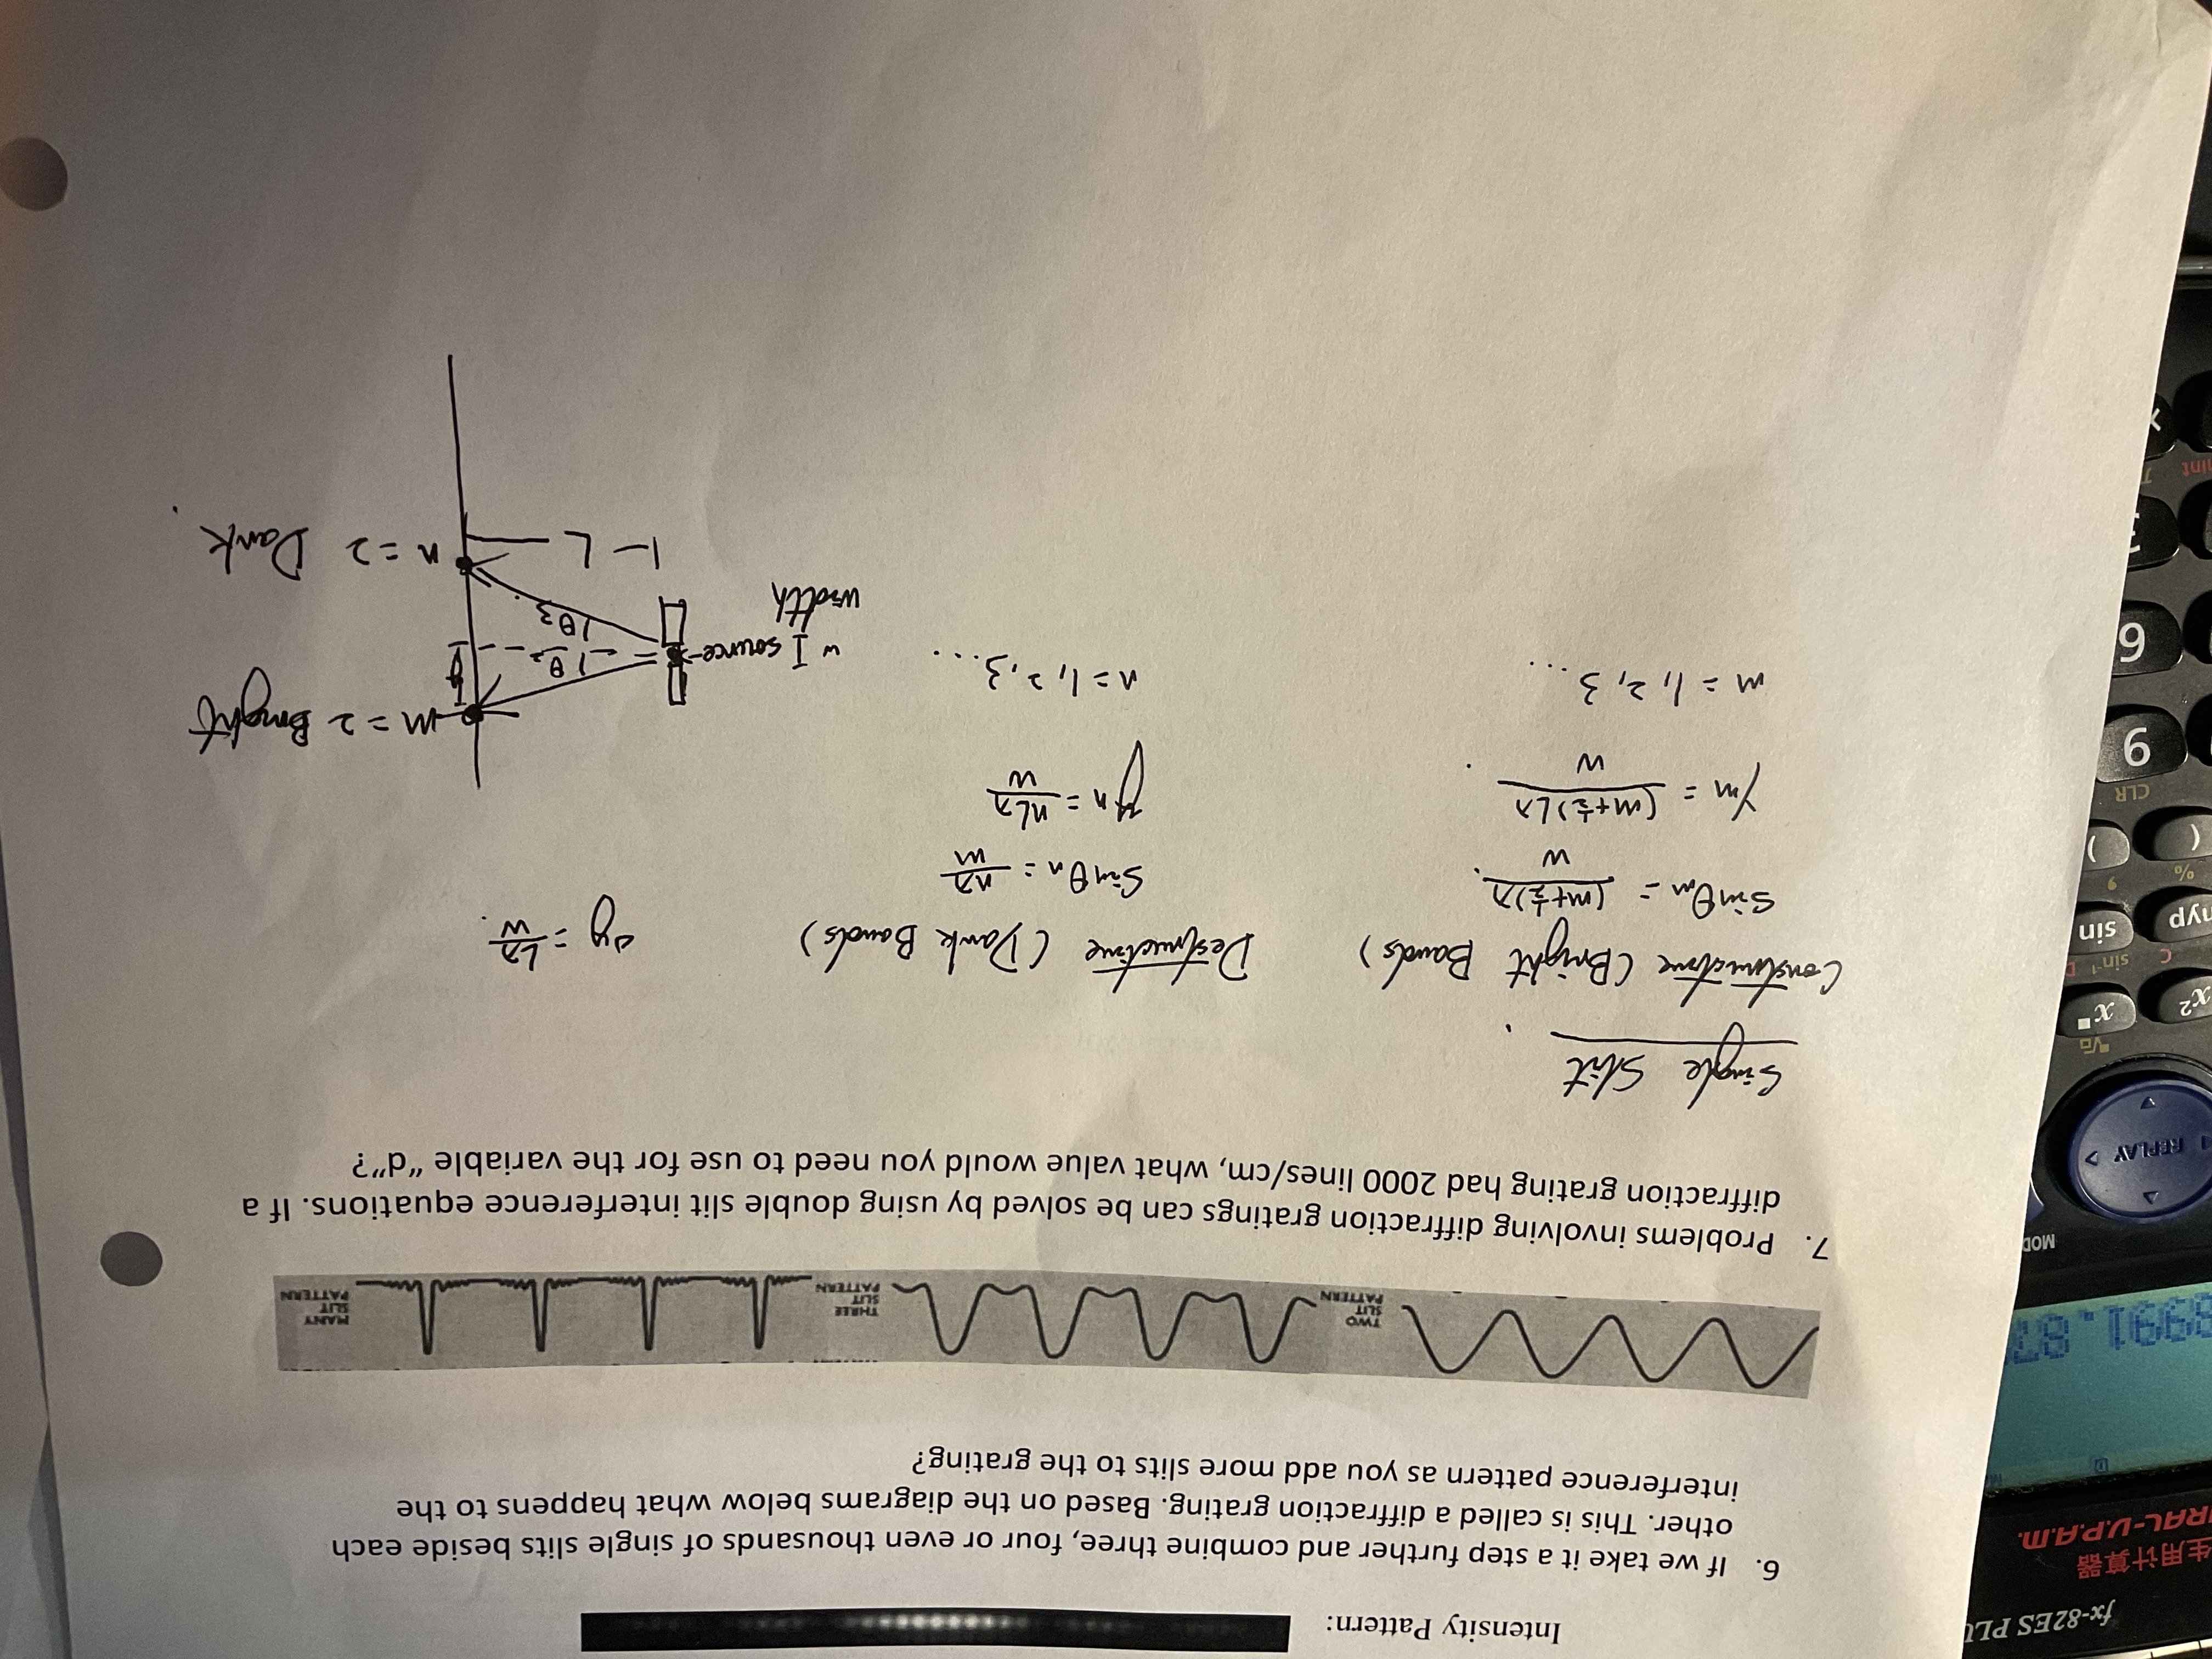 fx-82ES PLU
生用计算器
RAL-V.P.A.M.
8991.87
MOD
REPLAY
x²
x■
C
sin⁻¹ D
hyp
sin
%
,
(
)
CLR
9
6
3
Intensity Pattern:
6. If we take it a step further and combine three, four or even thousands of single slits beside each
other. This is called a diffraction grating. Based on the diagrams below what happens to the
interference pattern as you add more slits to the grating?
TWO
SLIT
PATTERN
THREE
SLIT
PATTERN
MANY
SLIT
PATTERN
7. Problems involving diffraction gratings can be solved by using double slit interference equations. If a
diffraction grating had 2000 lines/cm, what value would you need to use for the variable “d”?
Single Slit
Constructive (Bright Bands)
sinθm = (m+½)λ / w
Ym = (m+½)Lλ / w
m = 1, 2, 3...
Destructive (Dark Bands)
Sinθn = nλ / m
yn = nLλ / w
n = 1, 2, 3...
Δy = Lλ / w
m = 2 Bright
w I source
width
θ2
y
θ3
L
n = 2 Dark